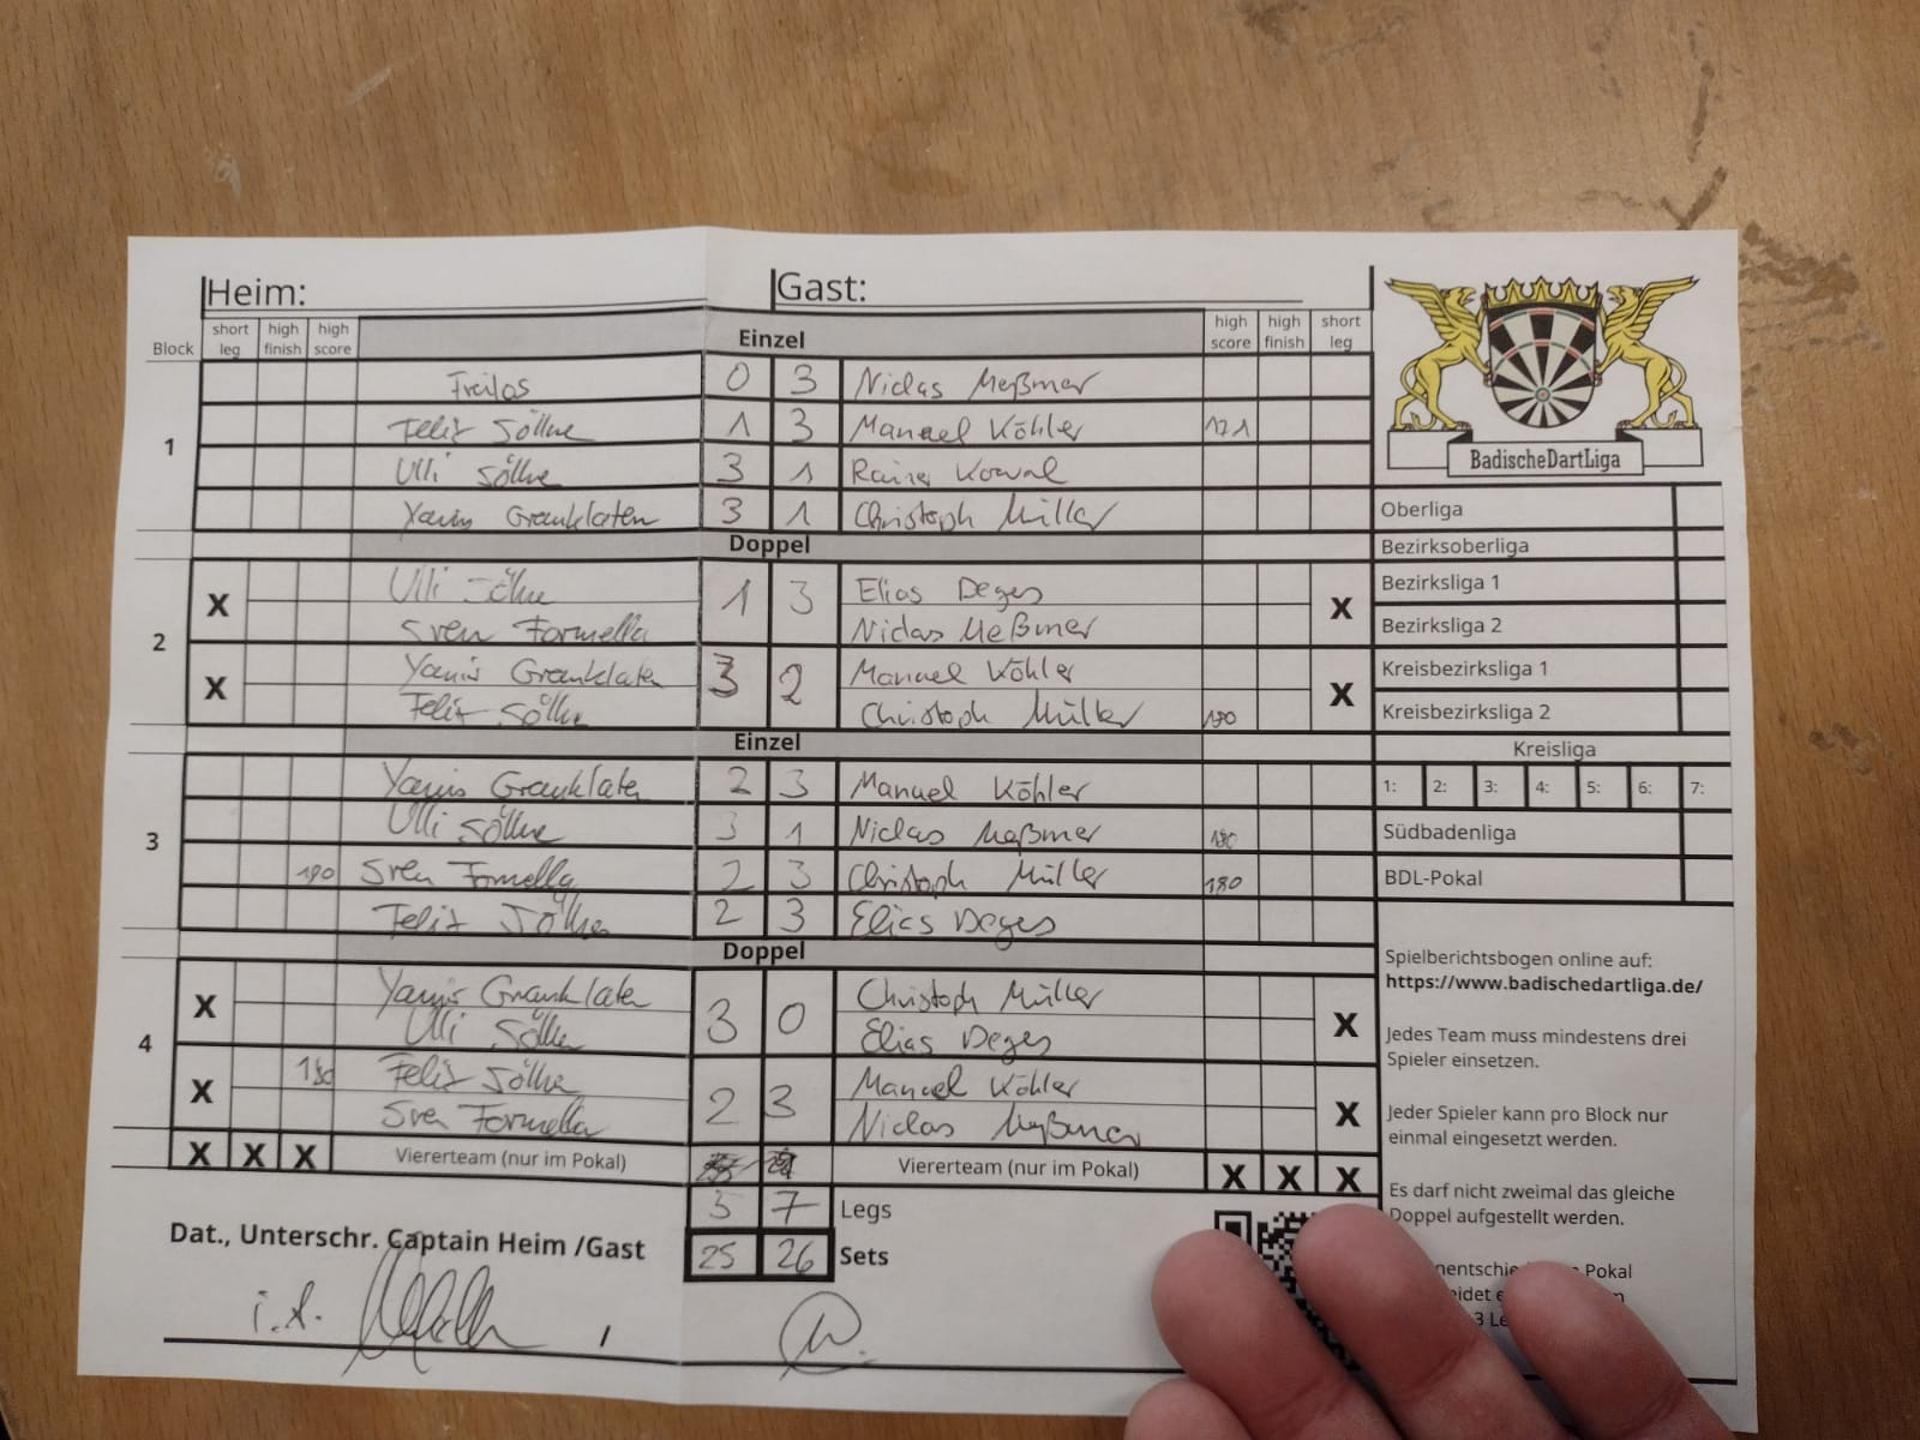 Heim: Gast:
Block short leg high finish high score Einzel high score high finish short leg
1
Freilos 0 3 Niclas Meßmer
Felix Söllne 1 3 Manuel Köhler 171
Ulli Söllne 3 1 Rainer Kowal
Yanis Granklaten 3 1 Christoph Müller
Doppel
2
X Ulli Söllne 1 3 Elias Deges X
Sven Formella Niclas Meßmer
X Yanis Granklaten 3 2 Manuel Köhler X
Felix Söllne Christoph Müller 180
Einzel
3
Yanis Granklaten 2 3 Manuel Köhler
Ulli Söllne 3 1 Niclas Meßmer 180
180 Sven Formella 2 3 Christoph Müller 180
Felix Söllne 2 3 Elias Deges
Doppel
4
X Yanis Granklaten 3 0 Christoph Müller X
Ulli Söllne Elias Deges
X 180 Felix Söllne 2 3 Manuel Köhler X
Sven Formella Niclas Meßmer
X X X Viererteam (nur im Pokal) Viererteam (nur im Pokal) X X X
5 7 Legs
25 26 Sets
Dat., Unterschr. Captain Heim /Gast
i.A. /
BadischeDartLiga
Oberliga
Bezirksoberliga
Bezirksliga 1
Bezirksliga 2
Kreisbezirksliga 1
Kreisbezirksliga 2
Kreisliga
1: 2: 3: 4: 5: 6: 7:
Südbadenliga
BDL-Pokal
Spielberichtsbogen online auf:
https://www.badischedartliga.de/
Jedes Team muss mindestens drei
Spieler einsetzen.
Jeder Spieler kann pro Block nur
einmal eingesetzt werden.
Es darf nicht zweimal das gleiche
Doppel aufgestellt werden.
Pokal